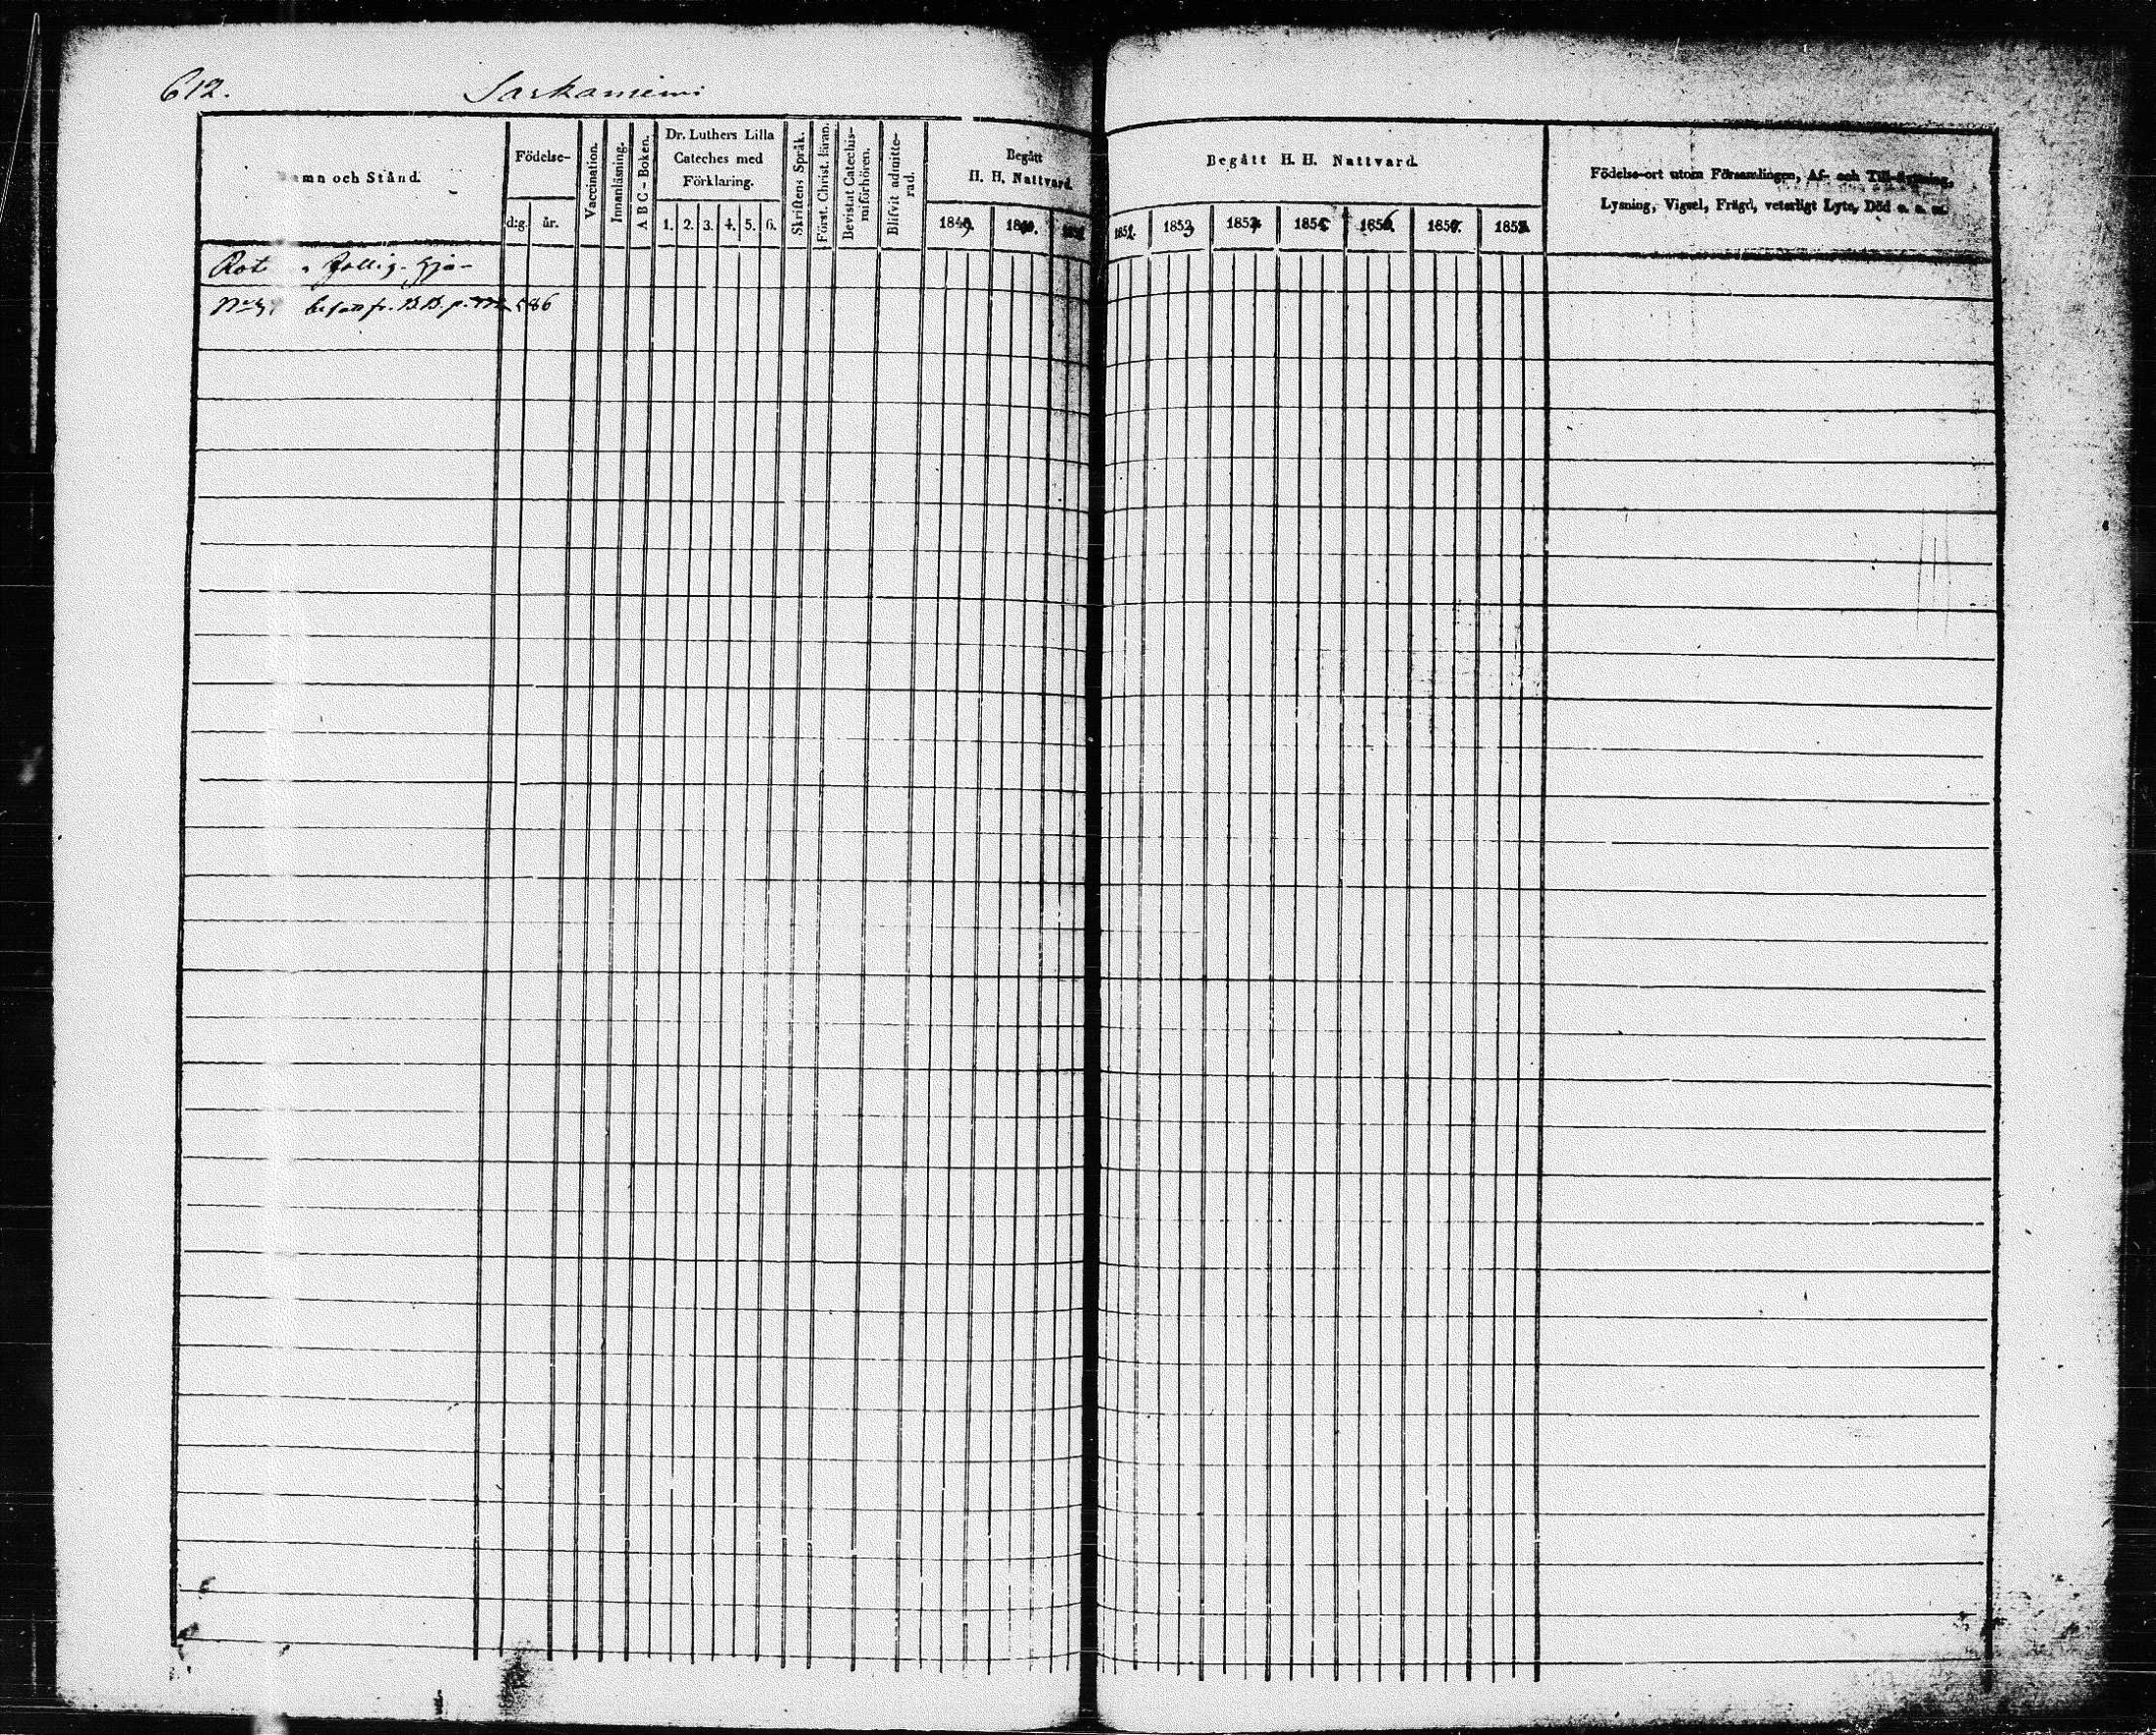 612. Sarkaniemi
Namn och Stånd.
Födelse-
d:g. år.
Vaccination.
Innanläsning.
A B C - Boken.
Dr. Luthers Lilla
Cateches med
Förklaring.
1. 2. 3. 4. 5. 6.
Skriftens Språk.
Först. Christ. läran.
Bevistat Catechis-
miförhören.
Blifvit admitte-
rad.
Begått
H. H. Nattvard.
1849.
Begått H. H. Nattvard.
1853 1854 1855 1856 1857. 1858.
Födelse-ort utom Församlingen, Af- och Till-flyttning,
Lysning, Vigsel, Frägd, veterligt Lyte, Död o. s. v.
586